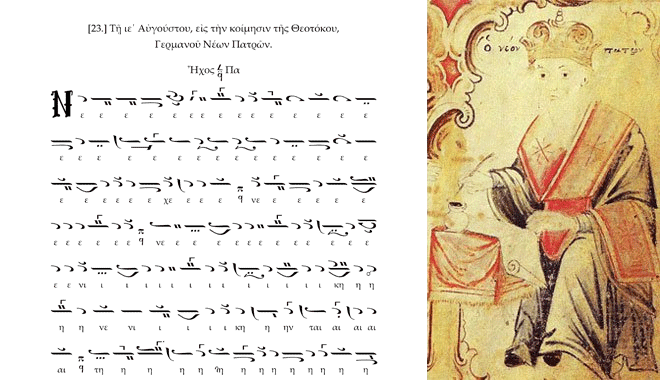 [23.] Τῇ ιε΄ Αὐγούστου, εἰς τὴν κοίμησιν τῆς Θεοτόκου,
Γερμανοῦ Νέων Πατρῶν.
Ἦχος Πα
Ν ε ε ε ε ε ε ε ε ε ε ε ε ε
ε ε ε ε ε ε ε ε ε ε ε ε
ε ε ε ε ε χε ε ε ε νε ε ε ε ε
ε ε ε ε ε νε ε ε ε ε ε ε ε ε
ε ε νι ι ι ι ι ι ι ι ι ι ι κη η
η η νε νι ι ι ι κη η ην ται αι αι αι
αι τη η η η η η θη η η η η η η η
ὁ νέον πατρῶν